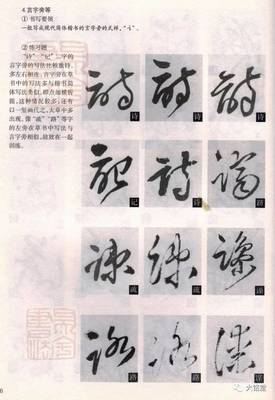 4.言字旁等
① 书写要领
一般写成现代简体楷书的言字旁的式样，"讠"。
② 练习题
"诗"、"记"二字的
言字旁的写法比较独特，
多左右相连。言字旁在草
书中的写法多与楷书简
体写法类似，即点接横折
圆，这种情况较多；还有
以一竖画代之，大草中多
出现。像"疏"、"路"等字
的左旁在草书中写法与
言字旁相似，故放在一起
训练。
诗 诗 诗
记 诗 踢
疏 疏 谏
路 路 谨
6
大铭家